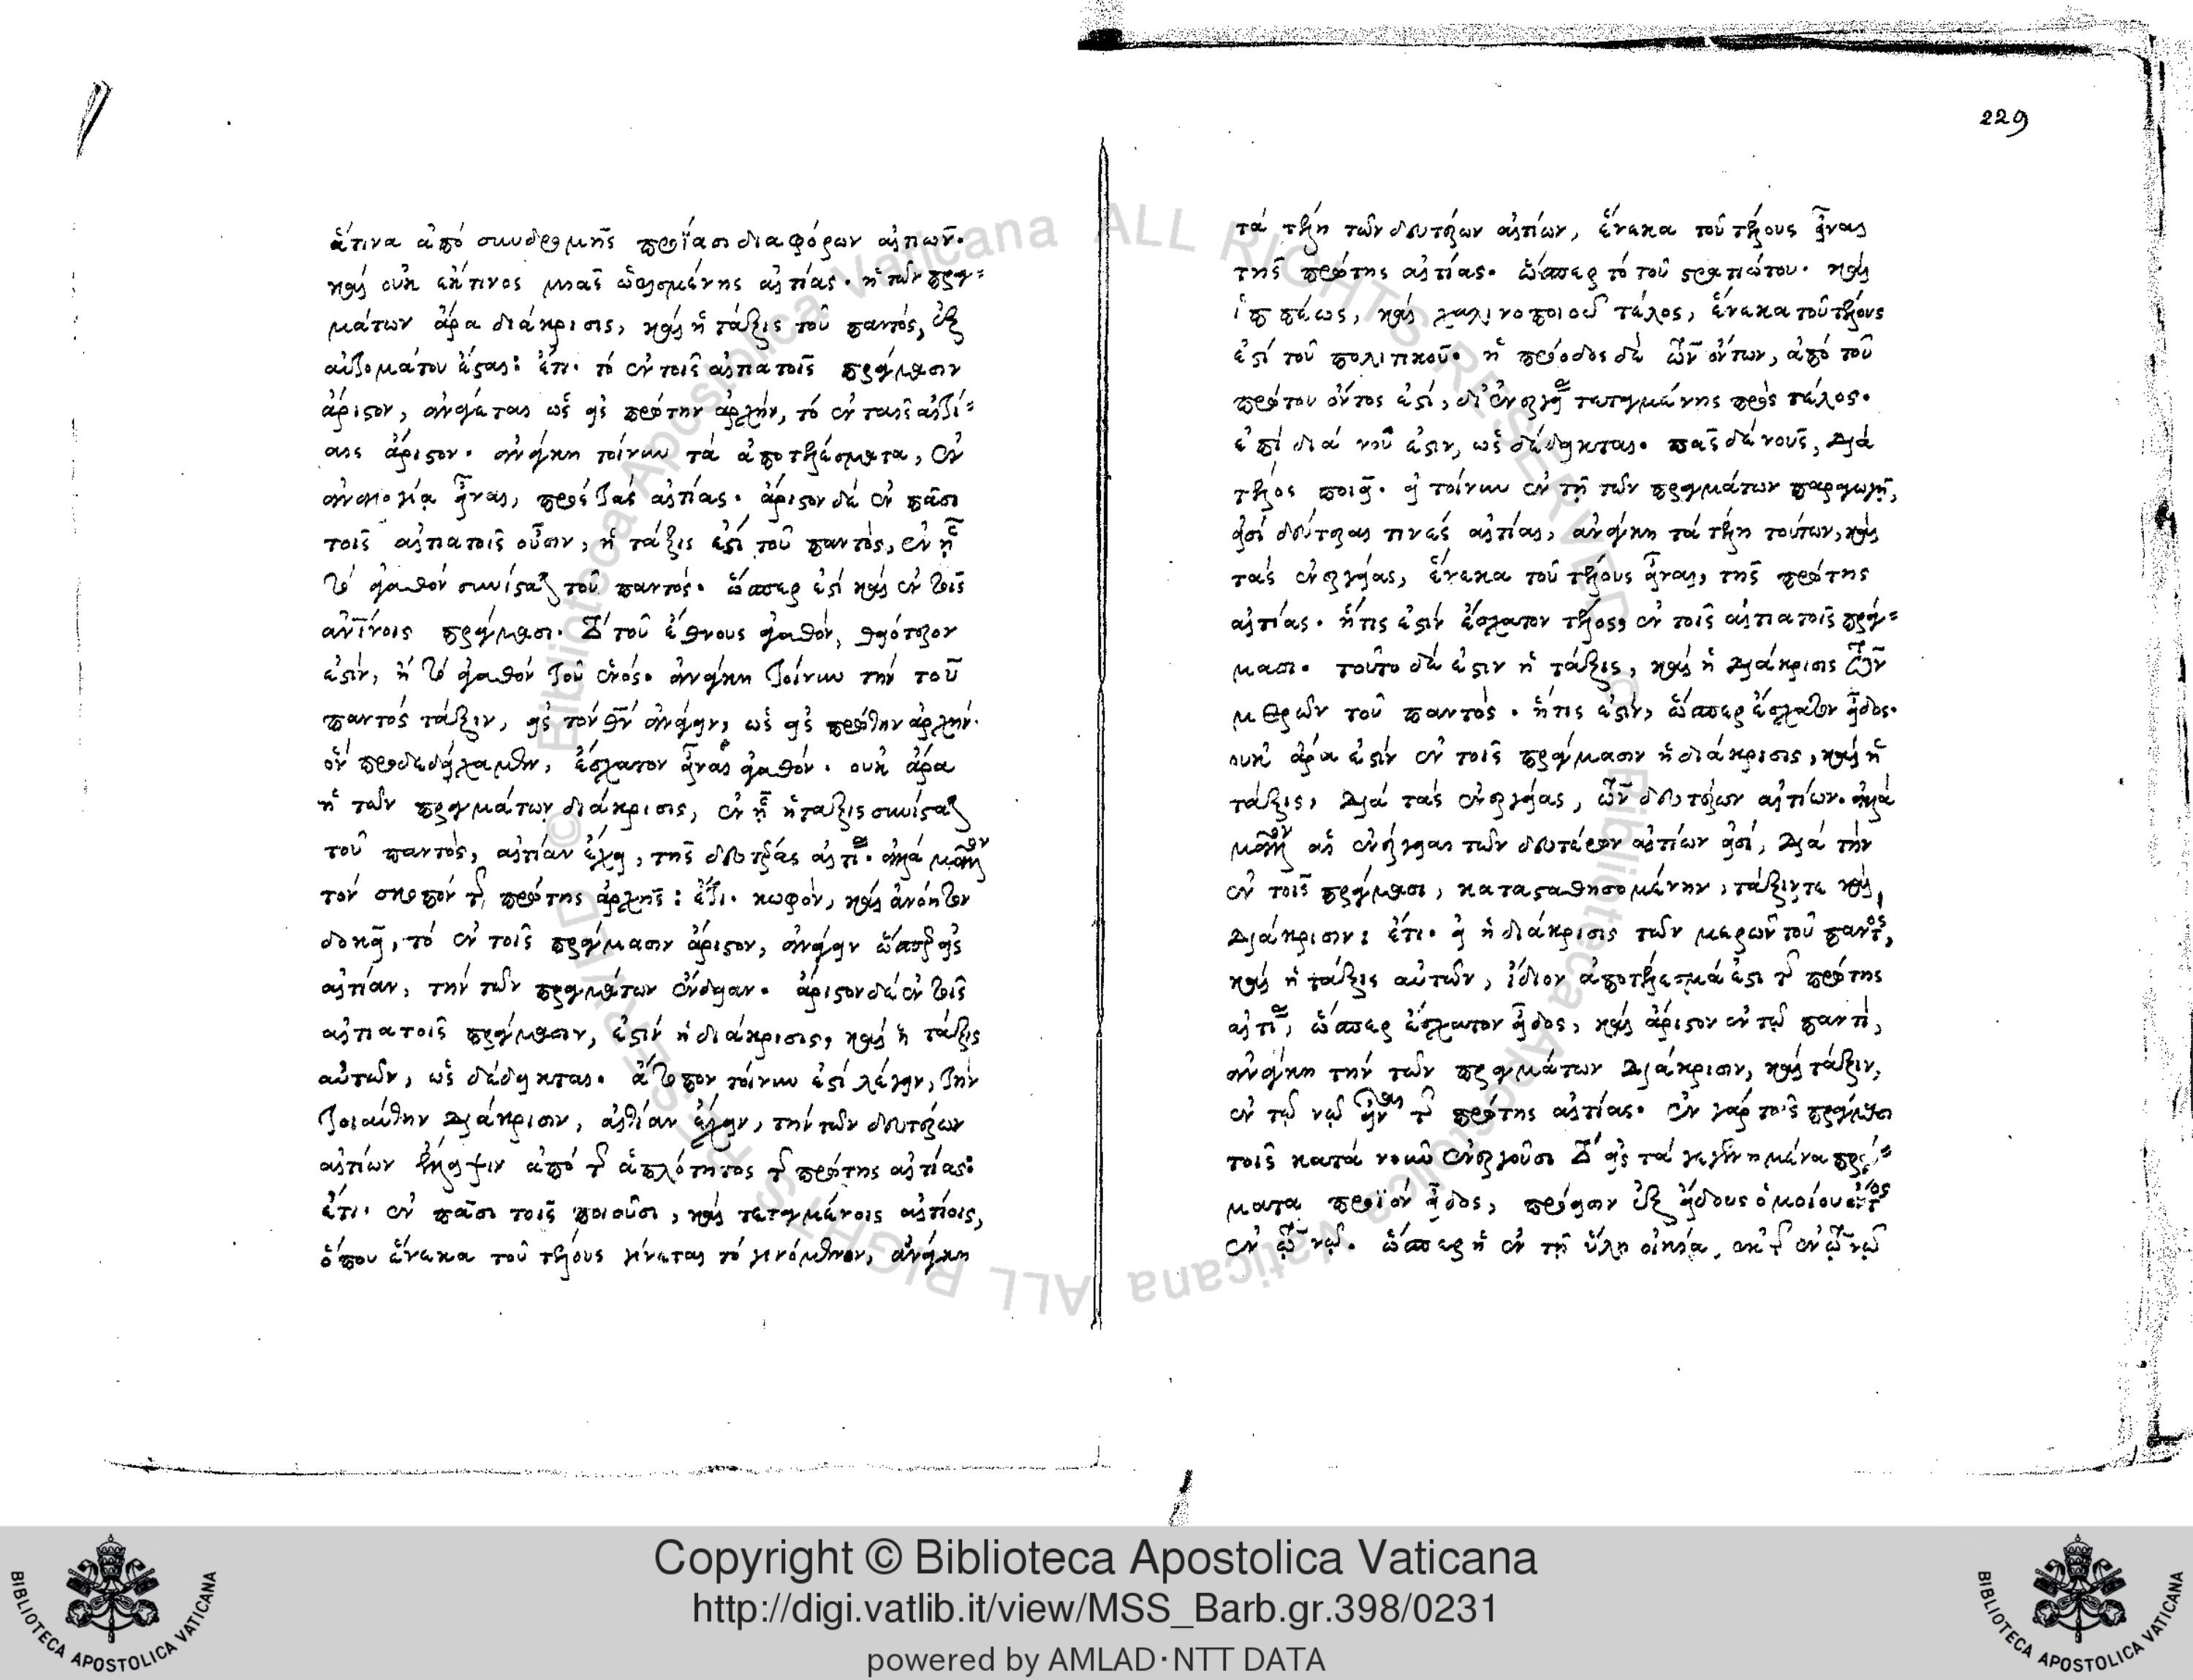 ἅτινα ἀπό συνδρομῆς προΐασι διαφόρων αἰτιῶν.
καί οὐκ ἐκ τινος μιᾶς ὡρισμένης αἰτίας. ἡ τῶν πραγ=
μάτων ἄρα διάκρισις, καί ἡ τάξις τοῦ παντός, ἐξ
αὐτομάτου ἔσται: ἔτι. τό ἐν τοῖς αἰτιατοῖς πράγμασιν
ἄριστον, ἀνάγεται ὡς εἰς πρώτην ἀρχήν, τό ἐν ταῖς αἰτί=
αις ἄριστον. ἀνάγκη τοίνυν τά ἀποτελέσματα, ἐν
ἀναλογίᾳ εἶναι, πρός τάς αἰτίας. ἄριστον δέ ἐν πᾶσι
τοῖς αἰτιατοῖς οὖσιν, ἡ τάξις ἐστί τοῦ παντός, ἐν ᾗ
τό ἀγαθόν συνίσταται τοῦ παντός. ὥσπερ ἐστί καί ἐν τοῖς
ἀνίνοις πράγμασι. τό τοῦ ἔθνους ἀγαθόν, θειότερον
ἐστίν, ἤ τό ἀγαθόν τοῦ ἑνός. ἀνάγκη τοίνυν τήν τοῦ
παντός τάξιν, εἰς τόν θν ἀνάγειν, ὡς εἰς πρώτην ἀρχήν.
ὅν προδεδείχαμεν, ἔσχατον εἶναι ἀγαθόν. οὐκ ἄρα
ἡ τῶν πραγμάτων διάκρισις, ἐν ᾗ ἡ τάξις συνίσταται
τοῦ παντός, αἰτίαν ἔχει, τῆς δευτέρας αἰτίας. ἀλλά μᾶλλον
τόν σκοπόν τῆς πρώτης ἀρχῆς: ἔτι. κωφόν, καί ἀνόητον
δοκεῖ, τό ἐν τοῖς πράγμασιν ἄριστον, ἀνάγειν ὥσπερ εἰς
αἰτίαν, τήν τῶν πραγμάτων ἔνδειαν. ἄριστον δέ ἐν τοῖς
αἰτιατοῖς πράγμασιν, ἐστίν ἡ διάκρισις, καί ἡ τάξις
αὐτῶν, ὡς δέδεικται. ἄτοπον τοίνυν ἐστί λέγειν, τήν
τοιαύτην διάκρισιν, αἰτίαν ἔχειν, τήν τῶν δευτέρων
αἰτίων ἔλλειψιν ἀπό τῆς ἁπλότητος τῆς πρώτης αἰτίας:
ἔτι. ἐν πᾶσι τοῖς ποιοῦσι, καί τεταγμένοις αἰτίοις,
ὅπου ἕνεκα τοῦ τέλους γίνεται τό γινόμενον, ἀνάγκη
229
τά τέλη τῶν δευτέρων αἰτίων, ἕνεκα τοῦ τέλους εἶναι
τῆς πρώτης αἰτίας. ὥσπερ τό τοῦ στρατιώτου. καί
ἱππέως, καί χαλινοποιοῦ τέλος, ἕνεκα τοῦ τέλους
ἐστί τοῦ πολιτικοῦ. ἡ πρόοδος δέ τῶν ὄντων, ἀπό τοῦ
πρώτου ὄντος ἐστί, δι' ἐνεργείας τεταγμένης πρός τέλος.
ἐπεί διά νοῦ ἐστιν, ὡς δέδεικται. πᾶς δέ νοῦς, διά
τέλος ποιεῖ. εἰ τοίνυν ἐν τῇ τῶν πραγμάτων παραγωγῇ,
εἰσί δεύτεραι τινές αἰτίαι, ἀνάγκη τά τέλη τούτων, καί
τάς ἐνεργείας, ἕνεκα τοῦ τέλους εἶναι, τῆς πρώτης
αἰτίας. ἥτις ἐστίν ἔσχατον τέλος ἐν τοῖς αἰτιατοῖς πράγ=
μασι. τοῦτο δέ ἐστιν ἡ τάξις, καί ἡ διάκρισις τῶν
μερῶν τοῦ παντός. ἥτις ἐστίν, ὥσπερ ἔσχατον εἶδος.
οὐκ ἄρα ἐστίν ἐν τοῖς πράγμασιν ἡ διάκρισις, καί ἡ
τάξις, διά τάς ἐνεργείας, τῶν δευτέρων αἰτίων. ἀλλά
μᾶλλον αἱ ἐνέργειαι τῶν δευτέρων αἰτίων εἰσί, διά τήν
ἐν τοῖς πράγμασι, κατασταθησομένην, τάξιν τε καί,
διάκρισιν: ἔτι. εἰ ἡ διάκρισις τῶν μερῶν τοῦ παντός,
καί ἡ τάξις αὐτῶν, ἴδιον ἀποτέλεσμά ἐστι τῆς πρώτης
αἰτίας, ὥσπερ ἔσχατον εἶδος, καί ἄριστον ἐν τῷ παντί,
ἀνάγκη τήν τῶν πραγμάτων διάκρισιν, καί τάξιν,
ἐν τῷ νῷ εἶναι τῆς πρώτης αἰτίας. ἐν γάρ τοῖς πράγμασι
τοῖς κατά νοῦν ἐνεργοῦσι τό εἰς τά γεγενημένα πράγ=
ματα προϊόν εἶδος, πρόεισιν ἐξ εἴδους ὁμοίου ὄντος
ἐν τῷ νῷ. ὥσπερ ἡ ἐν τῇ ὕλῃ οἰκία, ἐκ τῆς ἐν τῷ νῷ
Copyright © Biblioteca Apostolica Vaticana
http://digi.vatlib.it/view/MSS_Barb.gr.398/0231
powered by AMLAD·NTT DATA
BIBLIOTECA APOSTOLICA VATICANA
BIBLIOTECA APOSTOLICA VATICANA